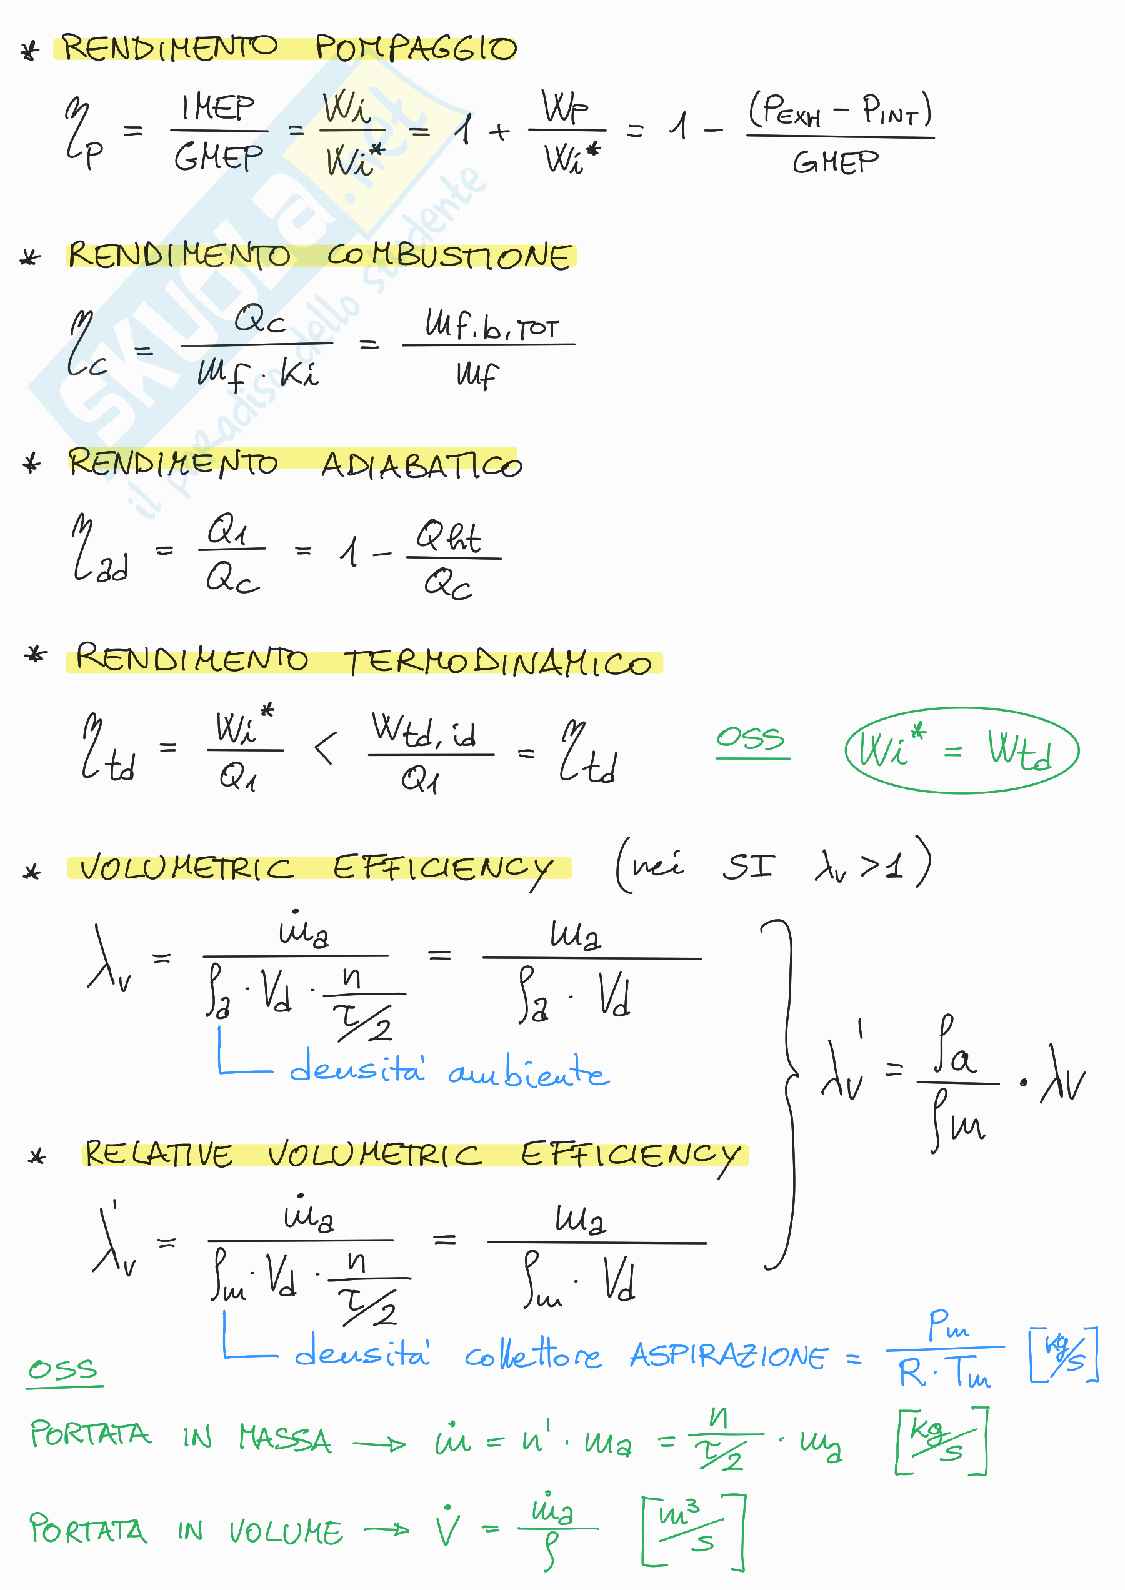 * RENDIMENTO POMPAGGIO
ηp = IMEP/GMEP = Wi/Wi* = 1 + Wp/Wi* = 1 - (PEXH - PINT)/GMEP
* RENDIMENTO COMBUSTIONE
ηc = Qc/(mf · Ki) = mf,b,TOT/mf
* RENDIMENTO ADIABATICO
ηad = Q1/Qc = 1 - Qht/Qc
* RENDIMENTO TERMODINAMICO
ηtd = Wi*/Q1 < Wtd,id/Q1 = ηtd OSS Wi* = Wtd
* VOLUMETRIC EFFICIENCY (nei SI λv > 1)
λv = ṁa/(ρa · Vd · n/(τ/2)) = ma/(ρa · Vd)
densità ambiente
λv' = ρa/ρm · λv
* RELATIVE VOLUMETRIC EFFICIENCY
λv' = ṁa/(ρm · Vd · n/(τ/2)) = ma/(ρm · Vd)
densità collettore ASPIRAZIONE = Pm/(R · Tm) [kg/s]
OSS
PORTATA IN MASSA → ṁ = n' · ma = n/(τ/2) · ma [kg/s]
PORTATA IN VOLUME → V̇ = ṁa/ρ [m³/s]
SKUOLA.net
il paradiso dello studente